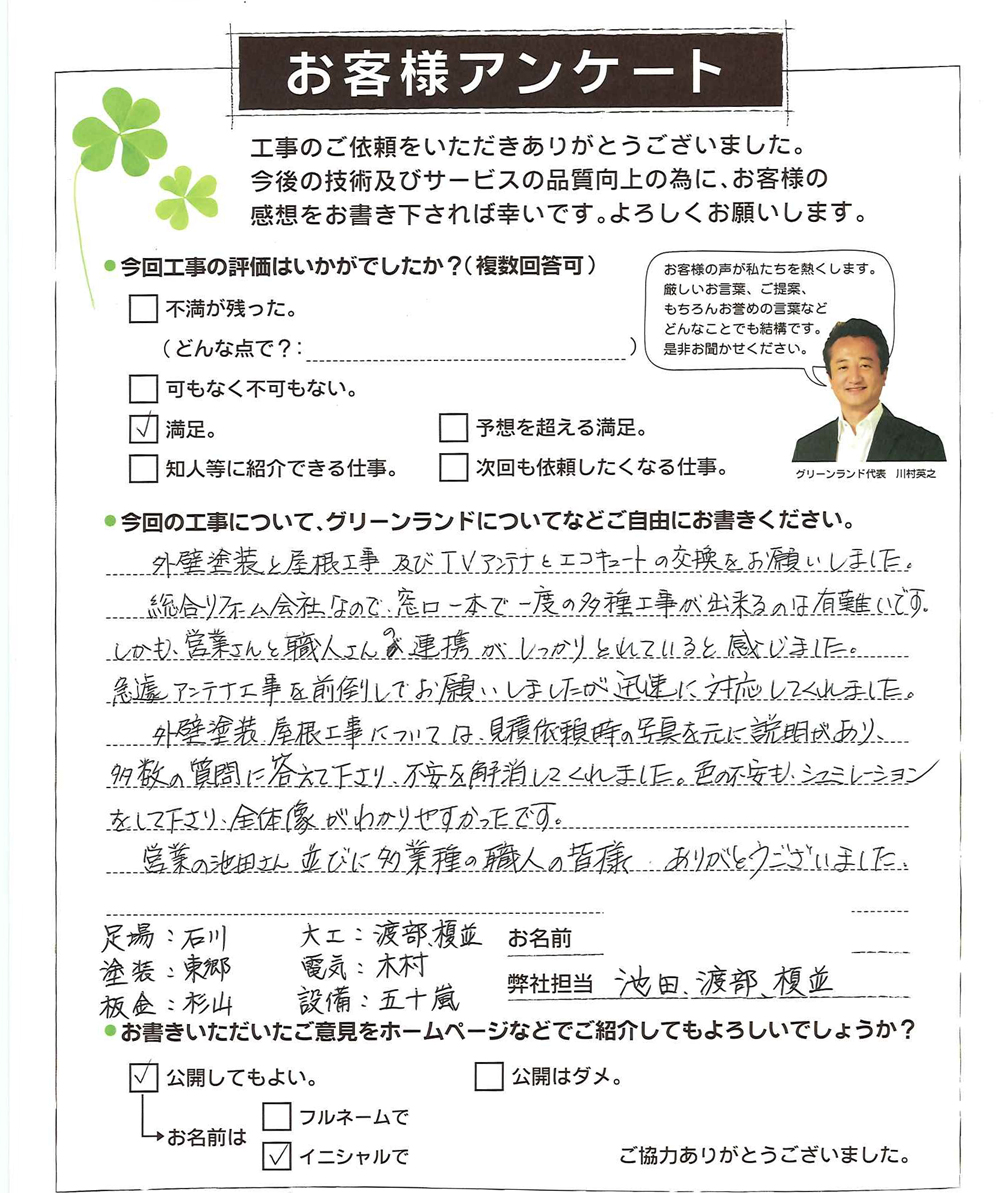 お客様アンケート
工事のご依頼をいただきありがとうございました。
今後の技術及びサービスの品質向上の為に、お客様の
感想をお書き下されば幸いです。よろしくお願いします。
●今回工事の評価はいかがでしたか?(複数回答可)
不満が残った。
(どんな点で?: )
可もなく不可もない。
✓ 満足。
予想を超える満足。
知人等に紹介できる仕事。
次回も依頼したくなる仕事。
お客様の声が私たちを熱くします。
厳しいお言葉、ご提案、
もちろんお誉めの言葉など
どんなことでも結構です。
是非お聞かせください。
グリーンランド代表 川村英之
●今回の工事について、グリーンランドについてなどご自由にお書きください。
外壁塗装と屋根工事 及びTVアンテナとエコキュートの交換をお願いしました。
総合リフォーム会社なので、窓口一本で一度の多種工事が出来るのは有難いです。
しかも、営業さんと職人さんの連携がしっかりとれていると感じました。
急遽アンテナ工事を前倒しでお願いしましたが迅速に対応してくれました。
外壁塗装 屋根工事については、見積依頼時の写真を元に説明があり、
多数の質問に答えて下さり、不安を解消してくれました。色の不安も、シュミレーション
をして下さり、全体像がわかりやすかったです。
営業の池田さん 並びに多業種の職人の皆様 ありがとうございました。
足場:石川
大工:渡部、榎並
お名前
塗装:東郷
電気:木村
弊社担当 池田、渡部、榎並
板金:杉山
設備:五十嵐
●お書きいただいたご意見をホームページなどでご紹介してもよろしいでしょうか?
✓ 公開してもよい。
公開はダメ。
お名前は
フルネームで
✓ イニシャルで
ご協力ありがとうございました。